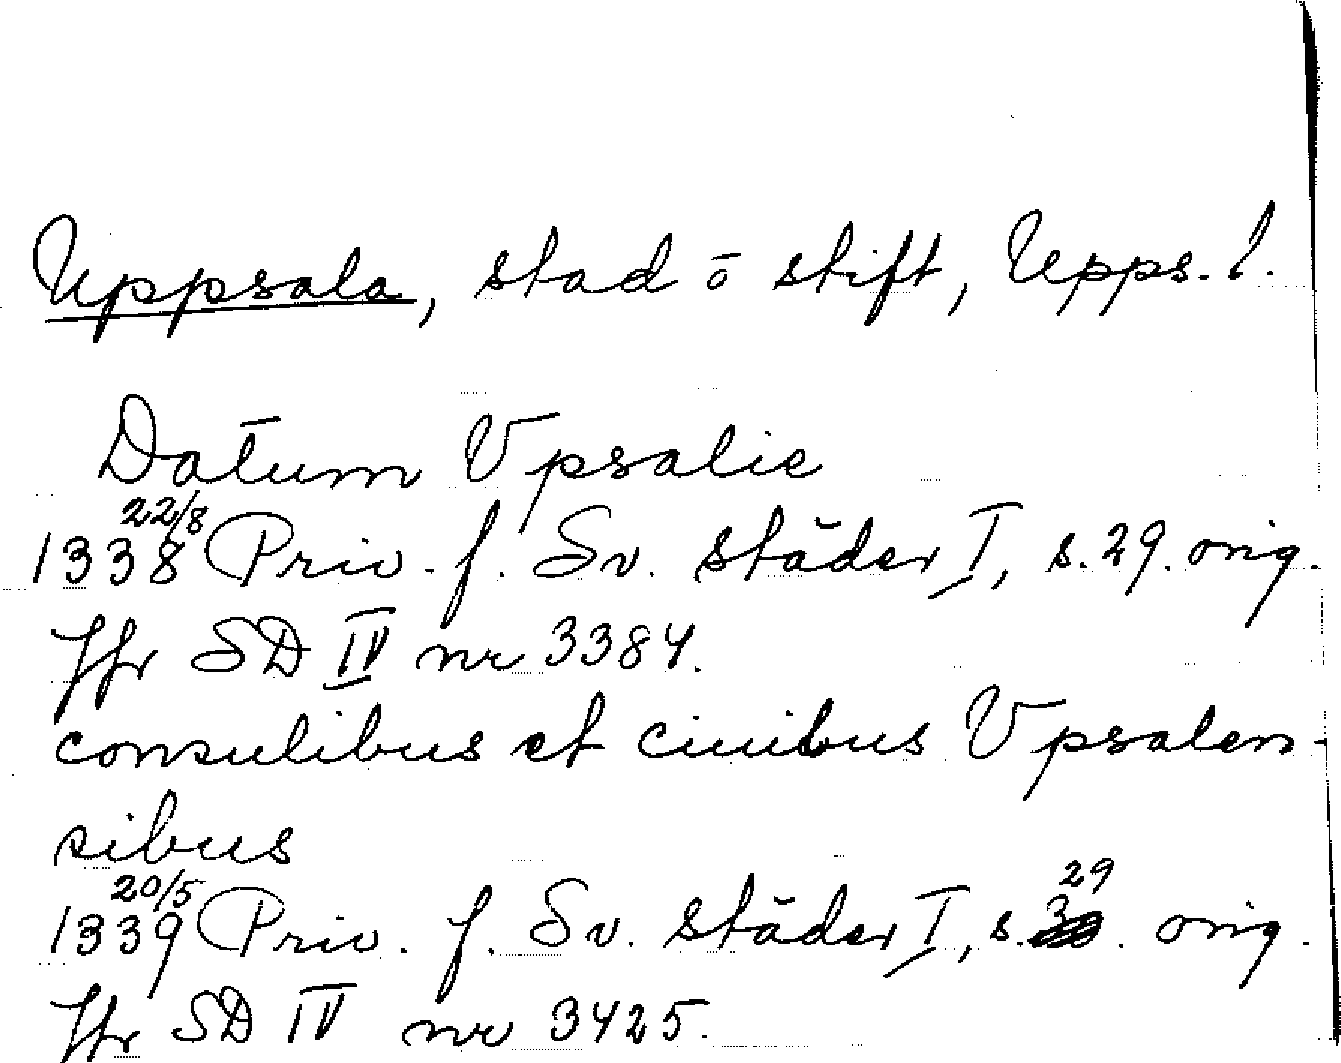 Uppsala, stad o stift, Upps. l.
Datum Vpsalie
22/8
1338 Priv. f. Sv. städer I, s. 29. orig.
Jfr SD IV nr 3384.
consulibus et ciuibus Vpsalen-
sibus
20/5 29
1339 Priv. f. Sv. städer I, s. . orig.
Jfr SD IV nr 3425.